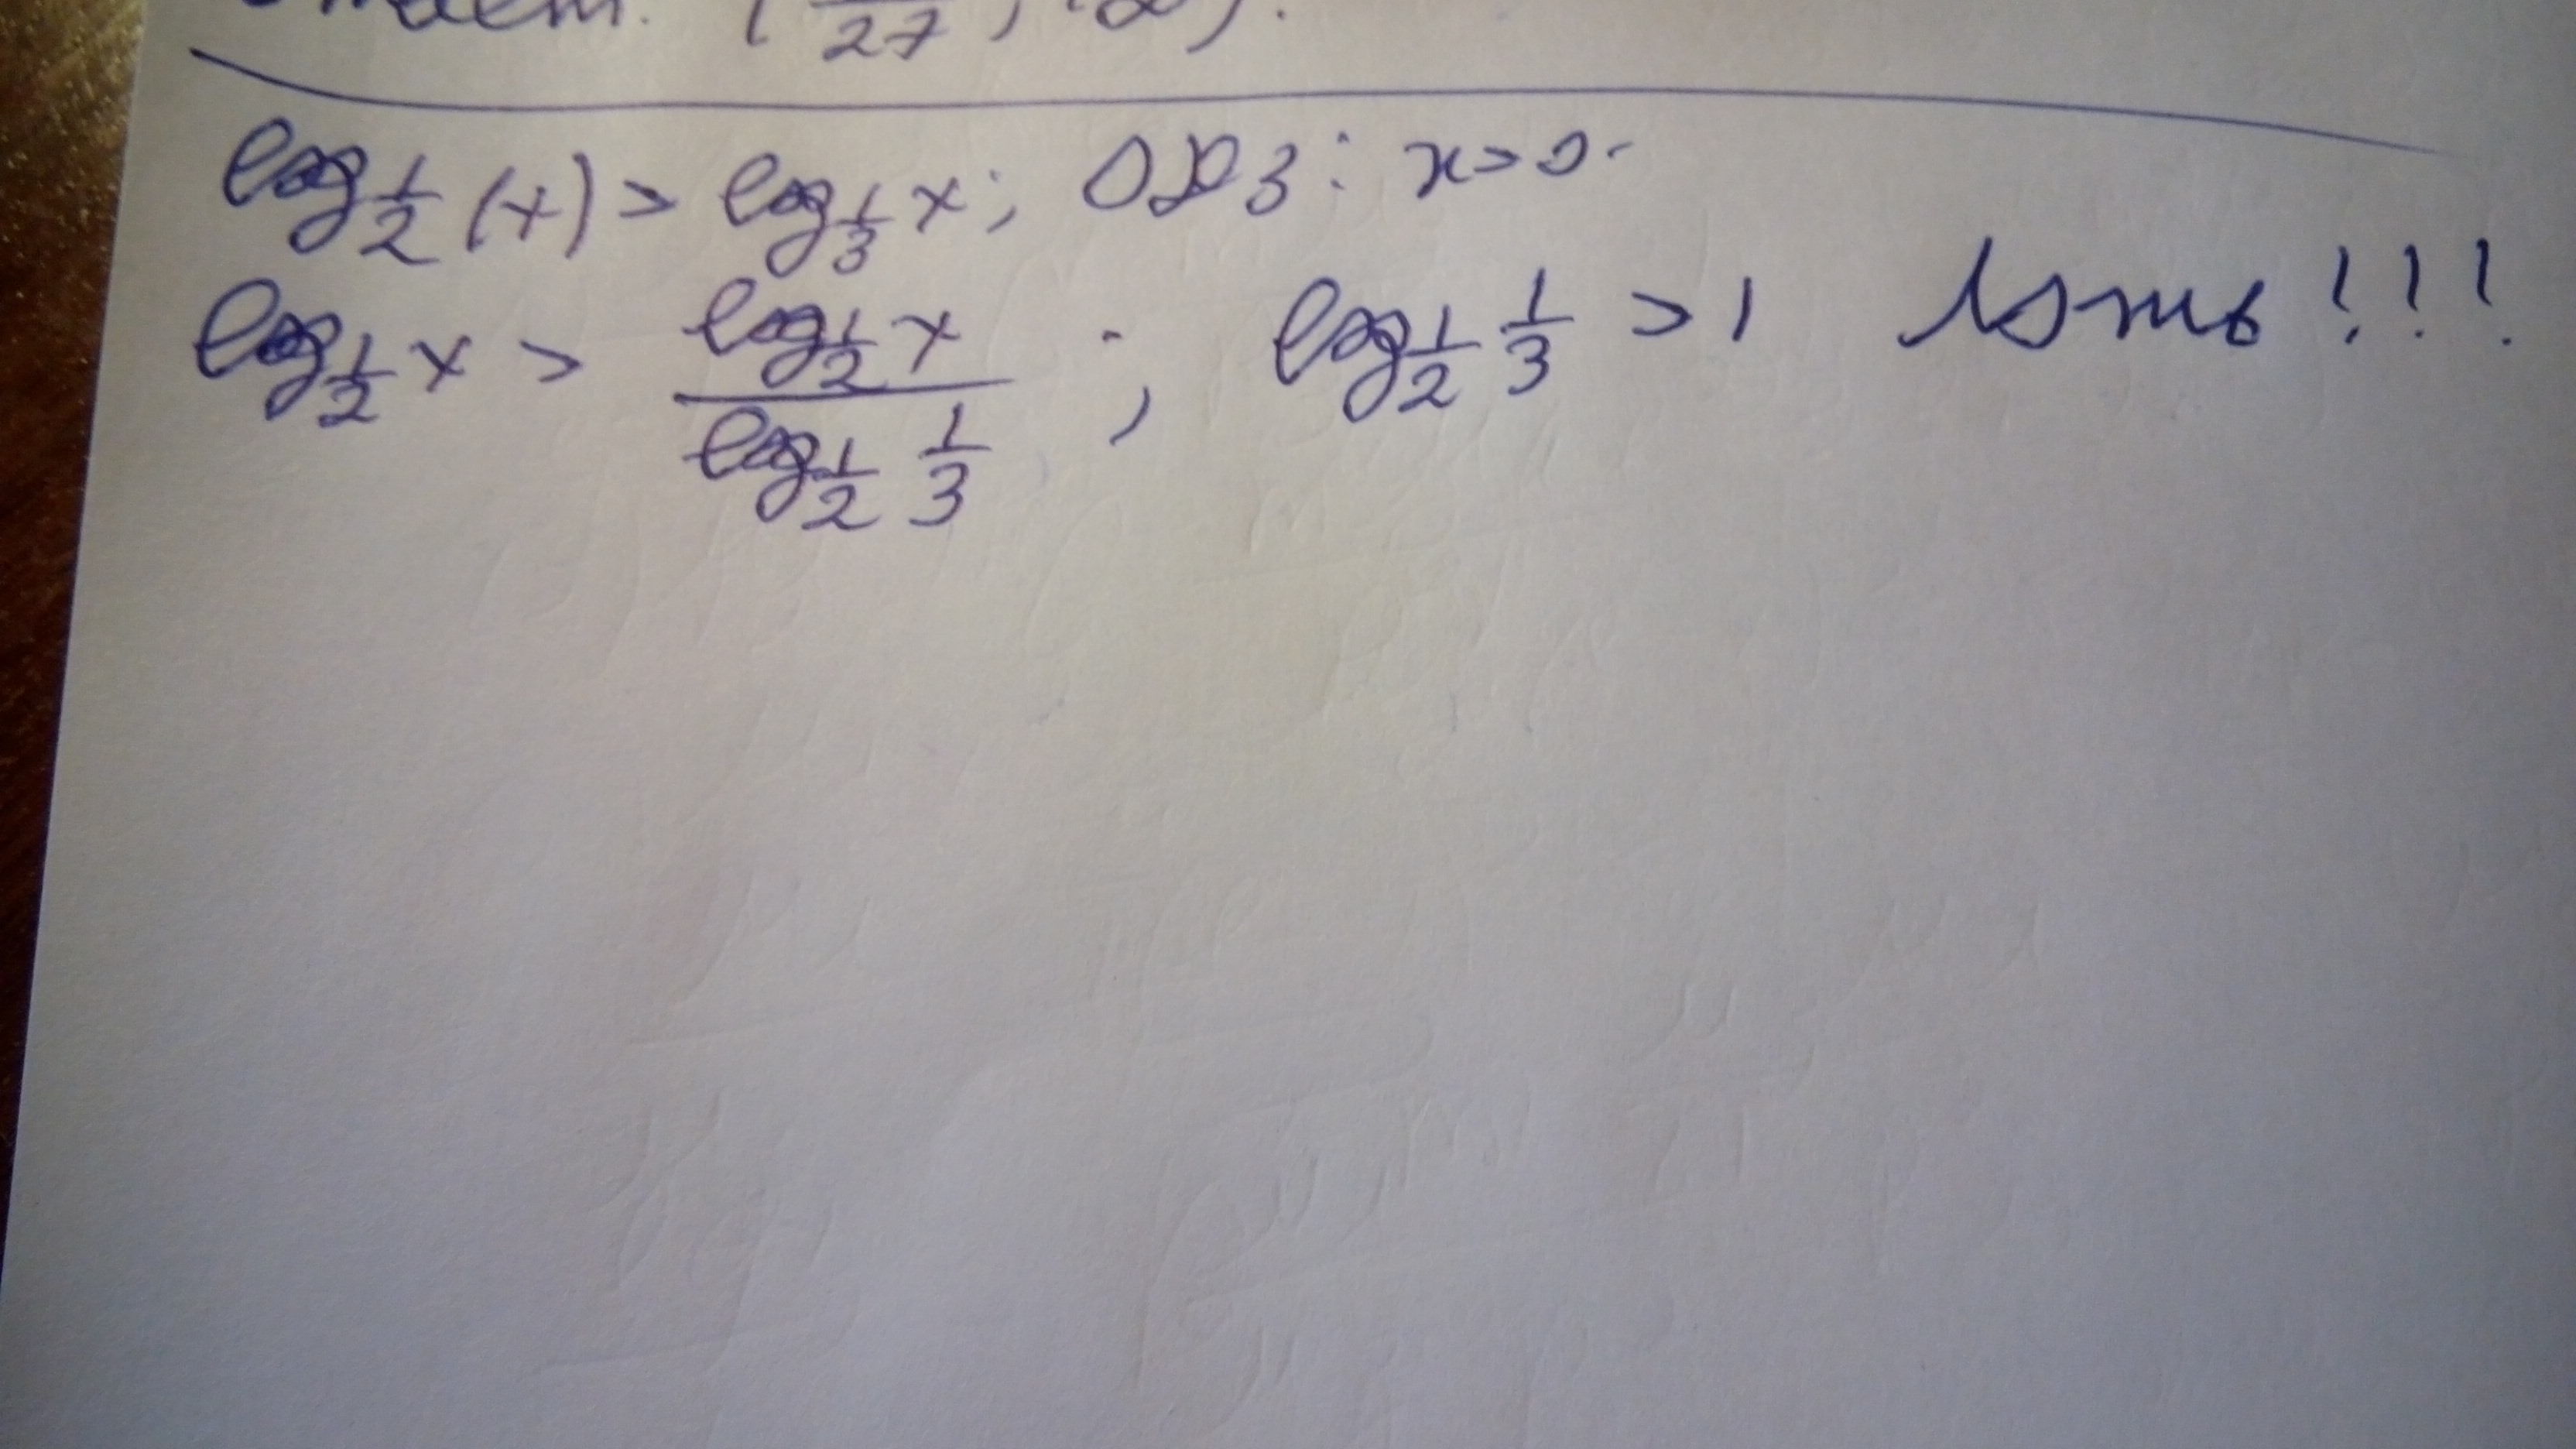 27
log 1/2 (x) > log 1/3 x; ОДЗ: x>0.
log 1/2 x > log 1/2 x / log 1/2 1/3 ; log 1/2 1/3 > 1 !!!